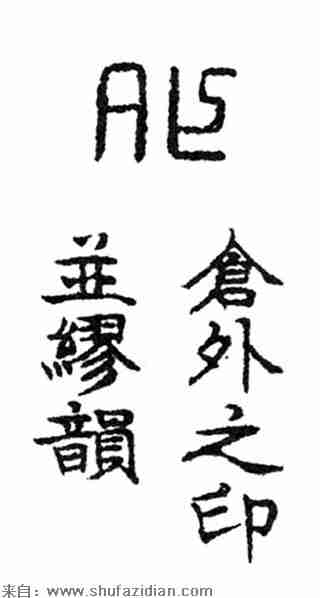 外
倉外之印
並繆韻
来自：www.shufazidian.com